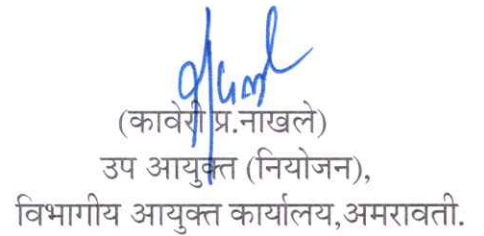 (कावेरी प्र.नाखले)
उप आयुक्त (नियोजन),
विभागीय आयुक्त कार्यालय,अमरावती.